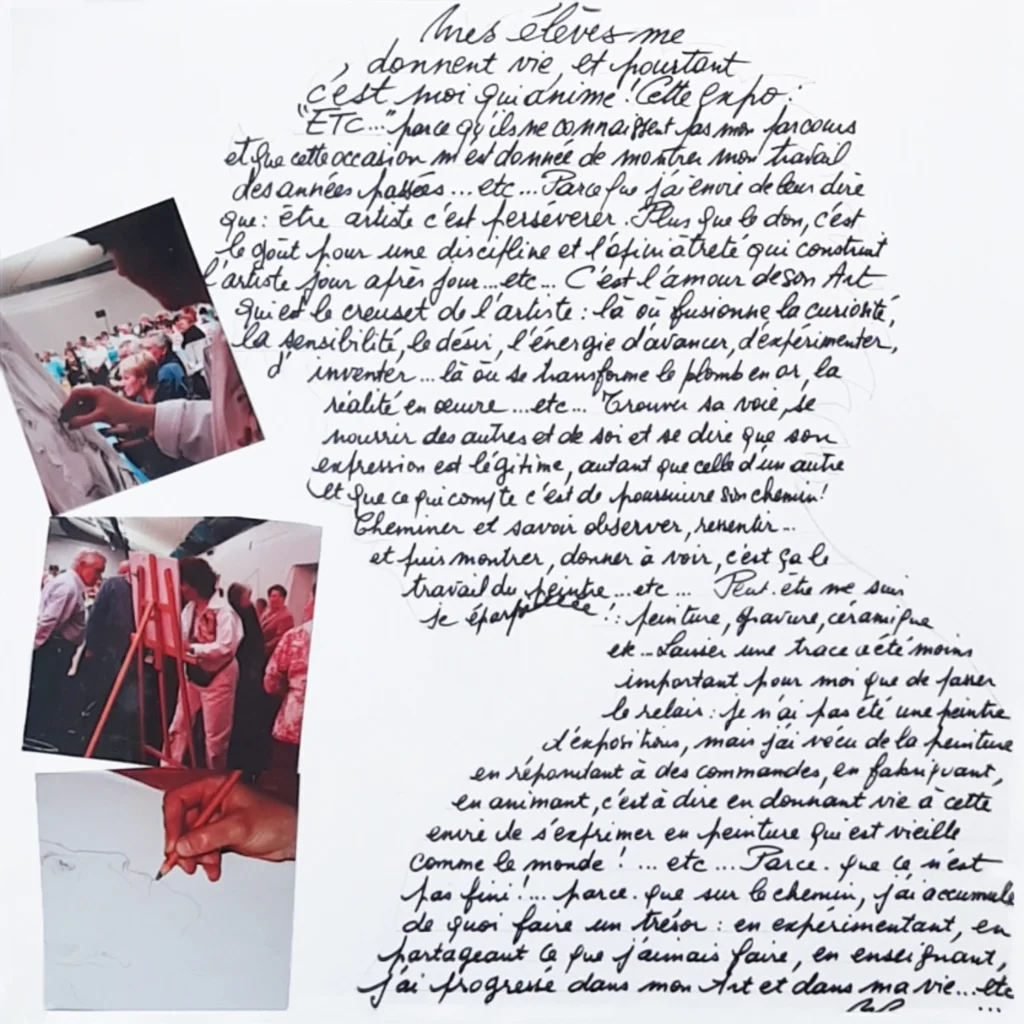 Mes élèves me
donnent vie, et pourtant
c'est moi qui anime ! Cette expo :
"ETC..." parce qu'ils ne connaissent pas mon parcours
et que cette occasion m'est donnée de montrer mon travail
des années passées ... etc ... Parce que j'ai envie de leur dire
que : être artiste c'est persévérer. Plus que le don, c'est
le goût pour une discipline et l'opiniâtreté qui construit
l'artiste jour après jour ... etc ... C'est l'amour de son Art
qui est le creuset de l'artiste : là où fusionne la curiosité,
la sensibilité, le désir, l'énergie d'avancer, d'expérimenter,
d'inventer ... là où se transforme le plomb en or, la
réalité en œuvre ... etc ... Trouver sa voie, se
nourrir des autres et de soi et se dire que son
expression est légitime, autant que celle d'un autre
et que ce qui compte c'est de poursuivre son chemin !
Cheminer et savoir observer, ressentir ...
et puis montrer, donner à voir, c'est ça le
travail du peintre ... etc ... Peut-être me suis
je éparpillée ! : peinture, gravure, céramique
etc ... Laisser une trace a été moins
important pour moi que de passer
le relais : je n'ai pas été une peintre
d'expositions, mais j'ai vécu de la peinture
en répondant à des commandes, en fabriquant,
en animant, c'est à dire en donnant vie à cette
envie de s'exprimer en peinture qui est vieille
comme le monde ! ... etc ... Parce que ce n'est
pas fini ! ... parce que sur le chemin, j'ai accumulé
de quoi faire un trésor : en expérimentant, en
partageant ce que j'aimais faire, en enseignant,
j'ai progressé dans mon Art et dans ma vie ... etc
...